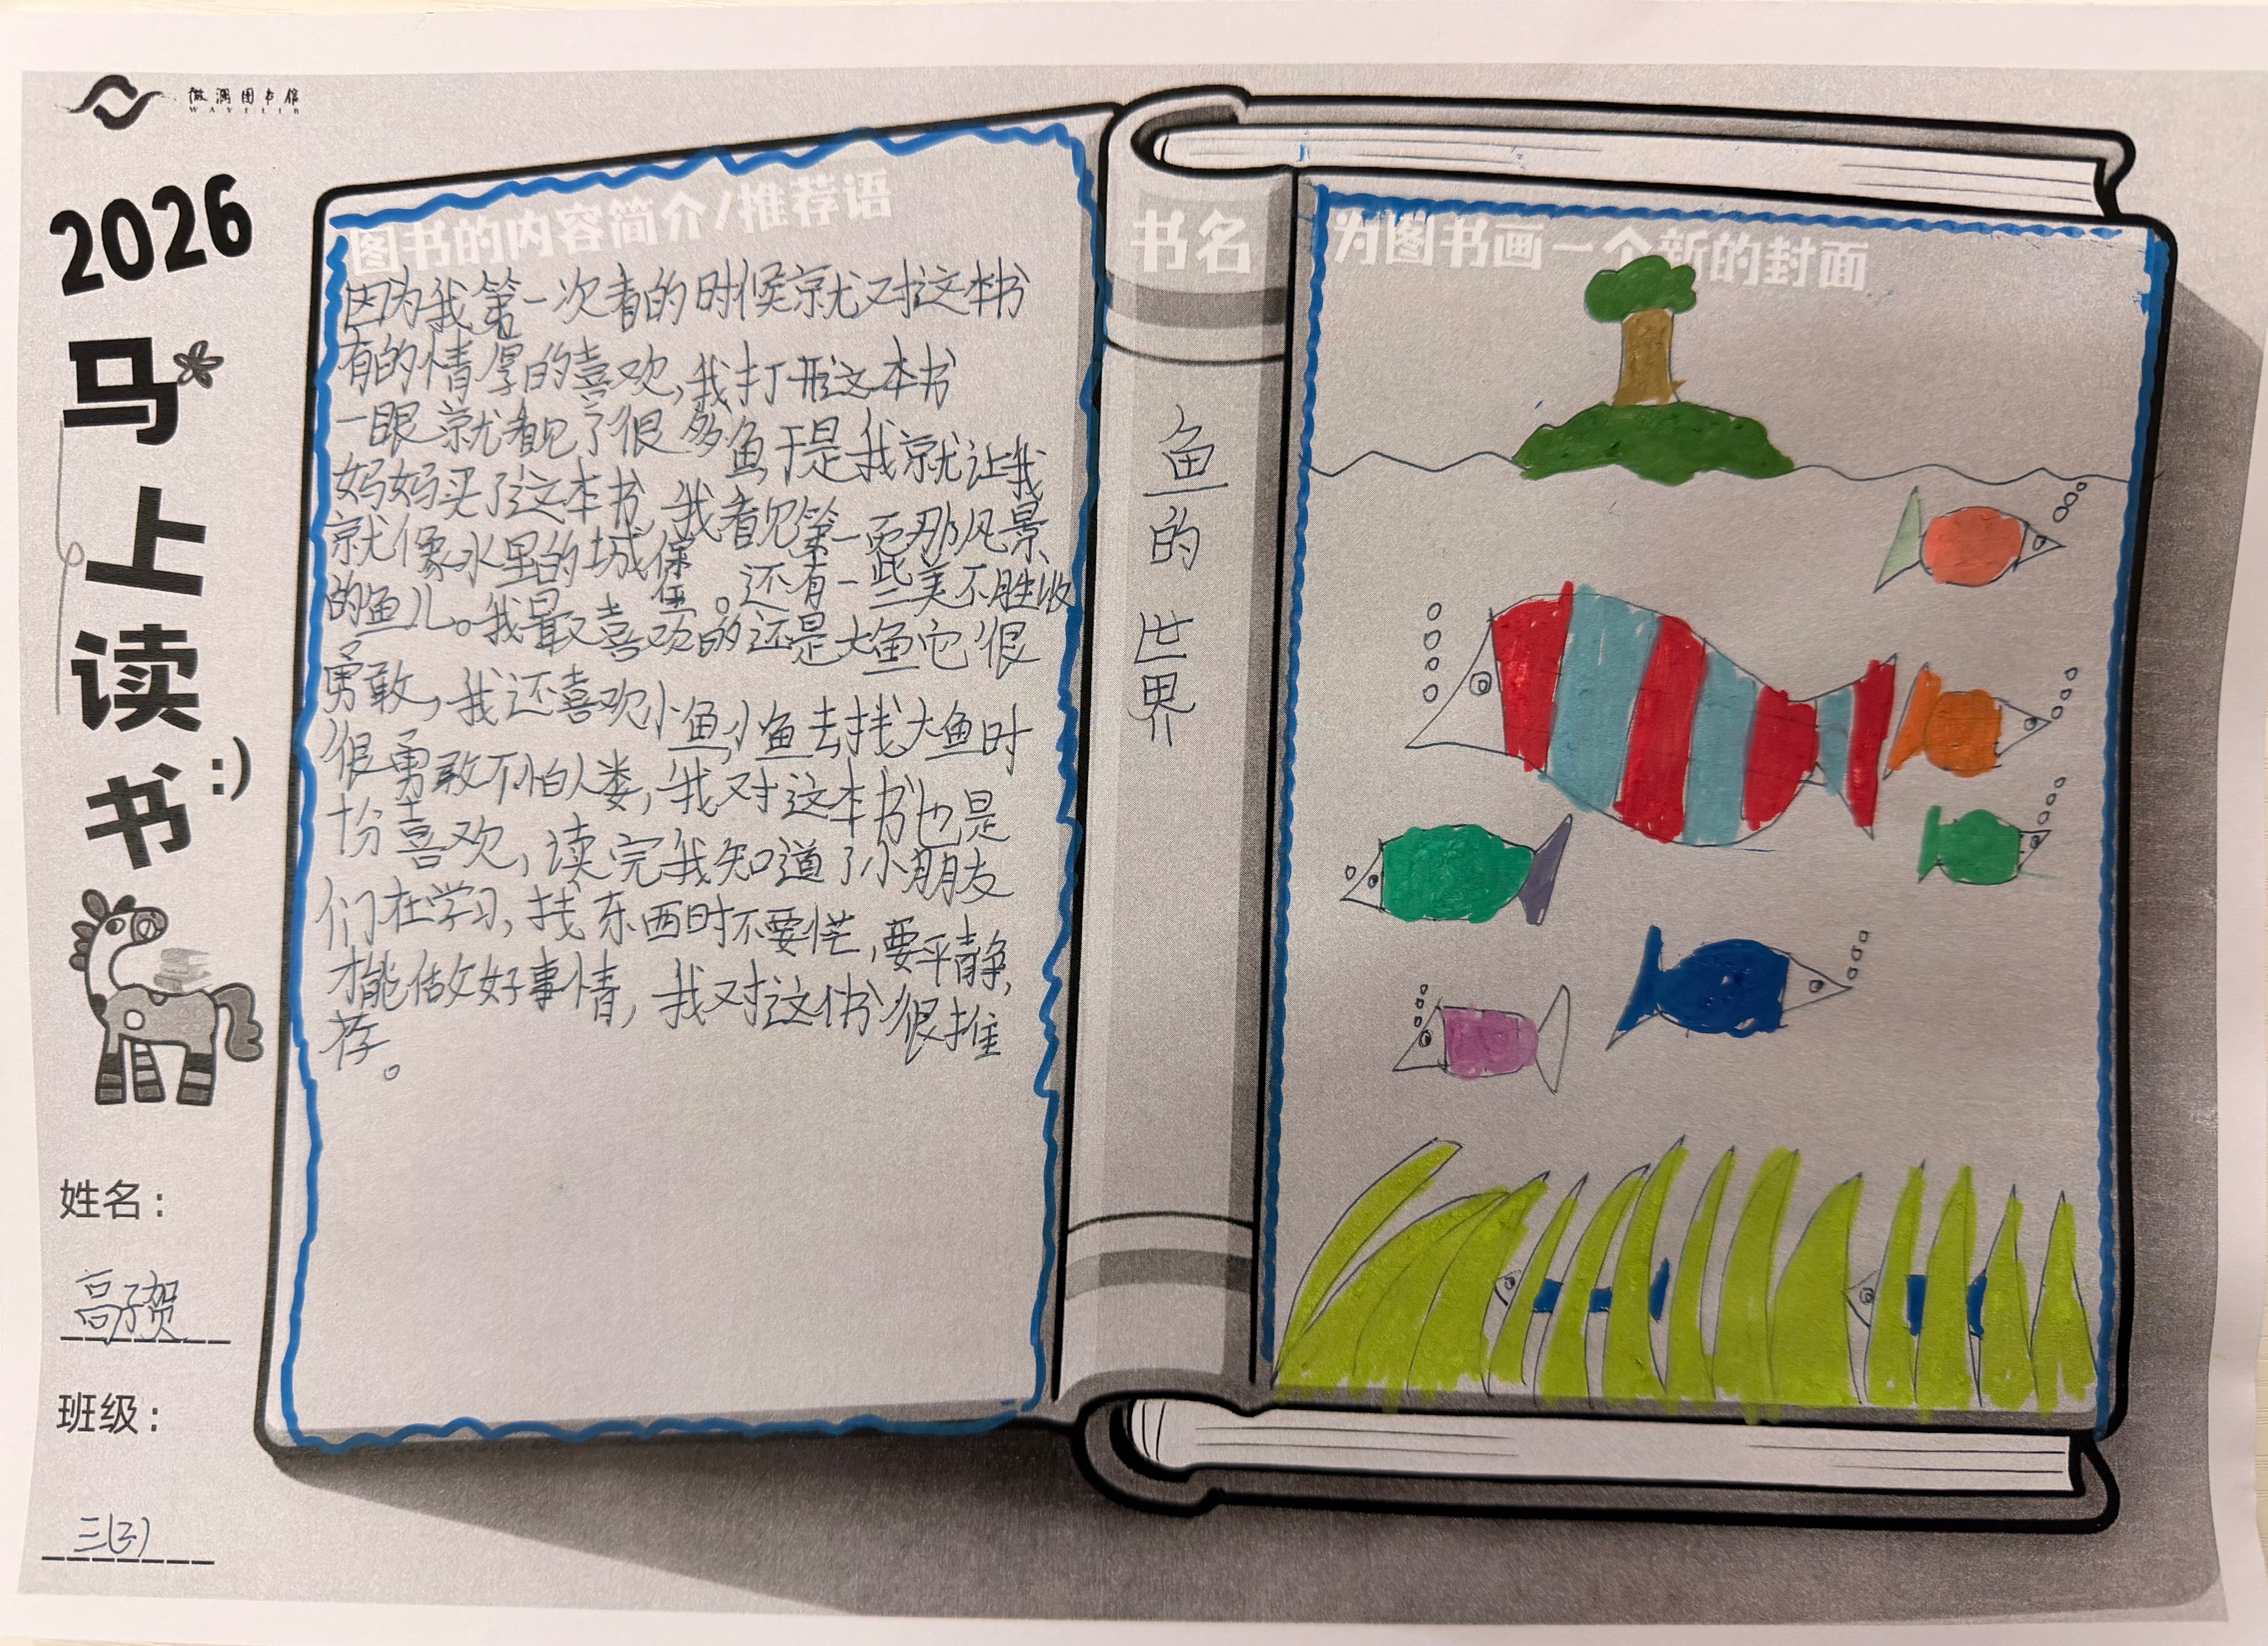 微澜图书馆
WAVELIB
2026
马上读书
:)
姓名：
高子贺
班级：
三(3)
图书的内容简介/推荐语
因为我第一次看的时候就对这本书
有的情厚的喜欢,我打开这本书
一眼就看见了很多鱼,于是我就让我
妈妈买了这本书,我看见第一页那风景
就像水里的城保堡。还有一些美不胜收
的鱼儿。我最喜欢的还是大鱼它很
勇敢,我还喜欢小鱼,小鱼去找大鱼时
很勇敢不怕人类,我对这本书也是
十分喜欢,读完我知道了小朋友
们在学习,找东西时不要忙,要平静,
才能做好事情,我对这书很推
荐。
书名
鱼的世界
为图书画一个新的封面